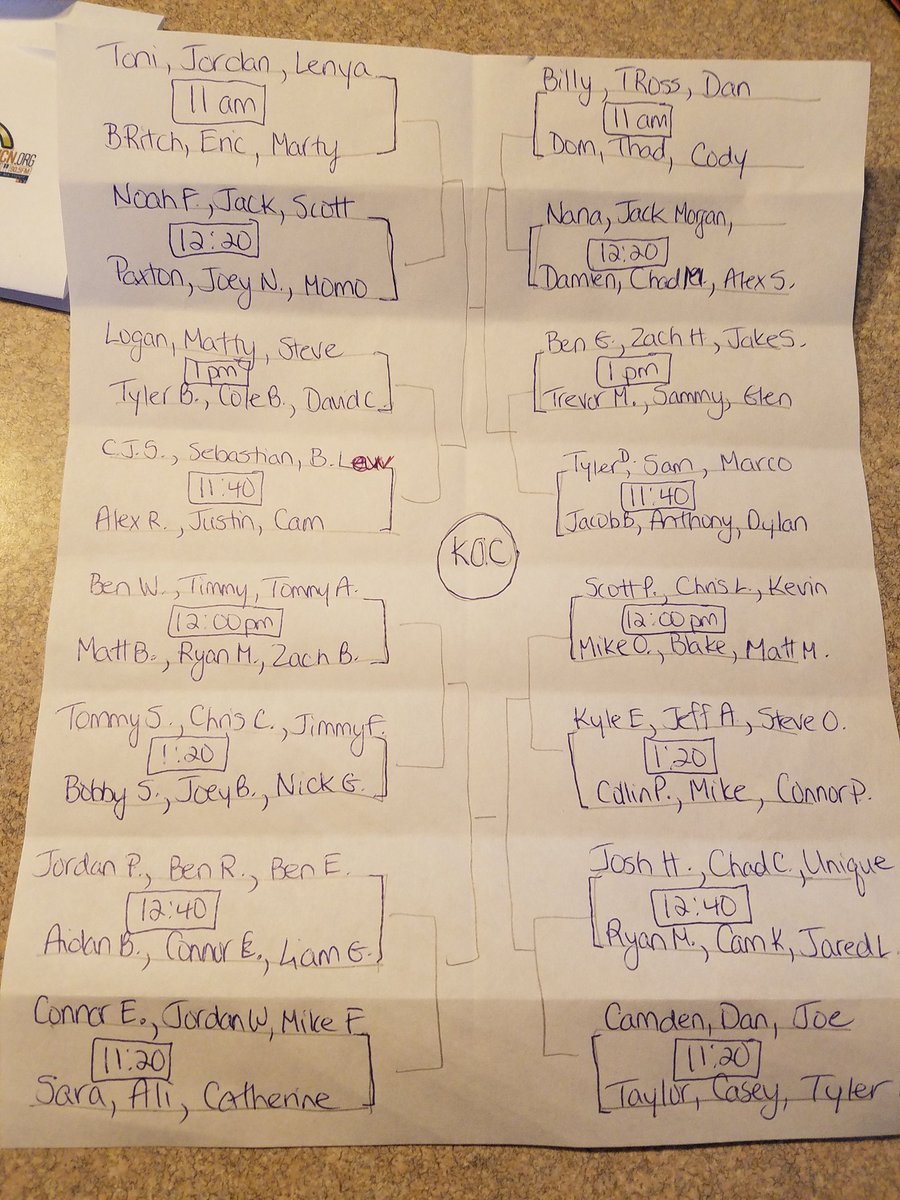 Toni, Jordan, Lenya
11 am
B.Ritch, Eric, Marty
Noah F., Jack, Scott
12:20
Paxton, Joey N., Momo
Logan, Matty, Steve
1 pm
Tyler B., Cole B., David C.
C.J.S., Sebastian, B. Lew
11:40
Alex R., Justin, Cam
Ben W., Timmy, Tommy A.
12:00pm
Matt B., Ryan M., Zach B.
Tommy S., Chris C., Jimmy F.
1:20
Bobby S., Joey B., Nick G.
Jordan P., Ben R., Ben E.
12:40
Aidan B., Connor E., Liam G.
Connor E., Jordan W, Mike F
11:20
Sara, Ali, Catherine
K.O.C
Billy, TRoss, Dan
11 am
Dom, Thad, Cody
Nana, Jack Morgan,
12:20
Damien, Chad M., Alex S.
Ben G., Zach H., Jake S.
1 pm
Trevor M., Sammy, Glen
Tyler D, Sam, Marco
11:40
Jacob B, Anthony, Dylan
Scott P., Chris L., Kevin
12:00pm
Mike O., Blake, Matt M.
Kyle E, Jeff A., Steve O.
1:20
Collin P., Mike, Connor P.
Josh H., Chad C., Unique
12:40
Ryan M., Cam K, Jared L.
Camden, Dan, Joe
11:20
Taylor, Casey, Tyler